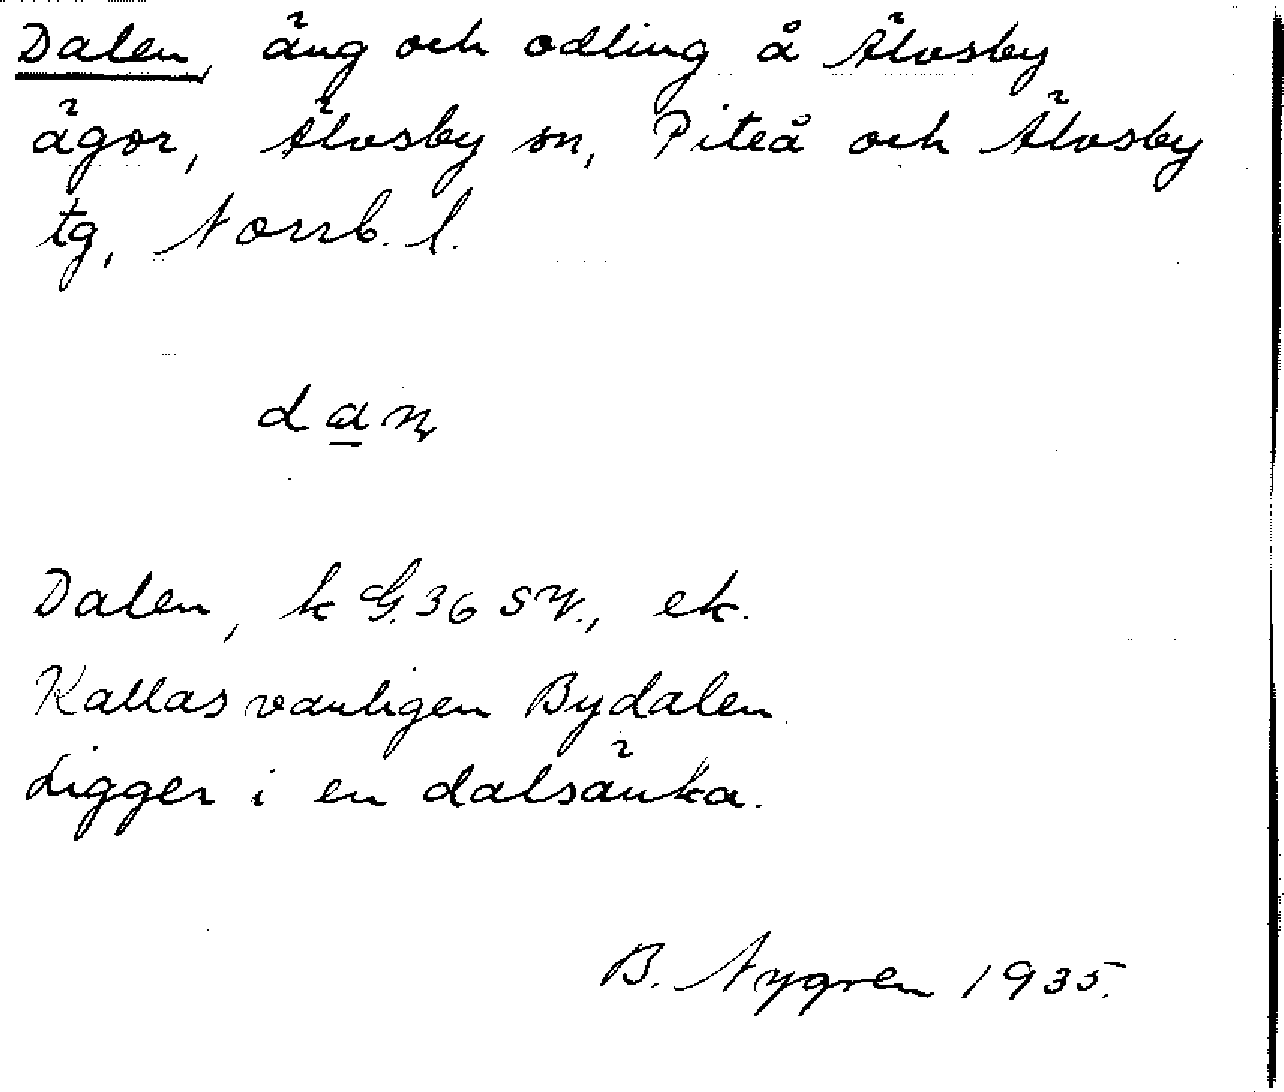 Dalen, äng och odling å Älvsby
ägor, Älvsby sn, Piteå och Älvsby
tg, Norrb. l.
dan
Dalen, k G. 36 SV., ek.
Kallas vanligen Bydalen
Ligger i en dalsänka.
B. Nygren 1935.